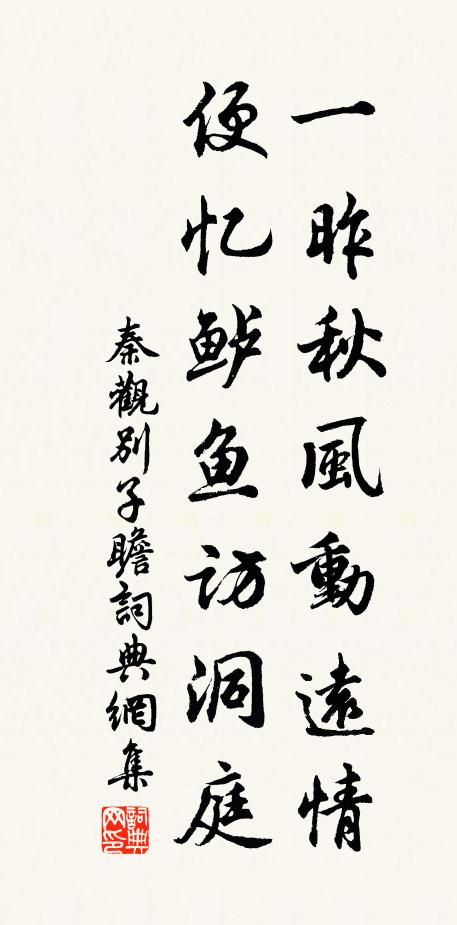 一昨秋風動遠情
便忆鲈鱼访洞庭
秦觀別子瞻詞典網集
詞典網印